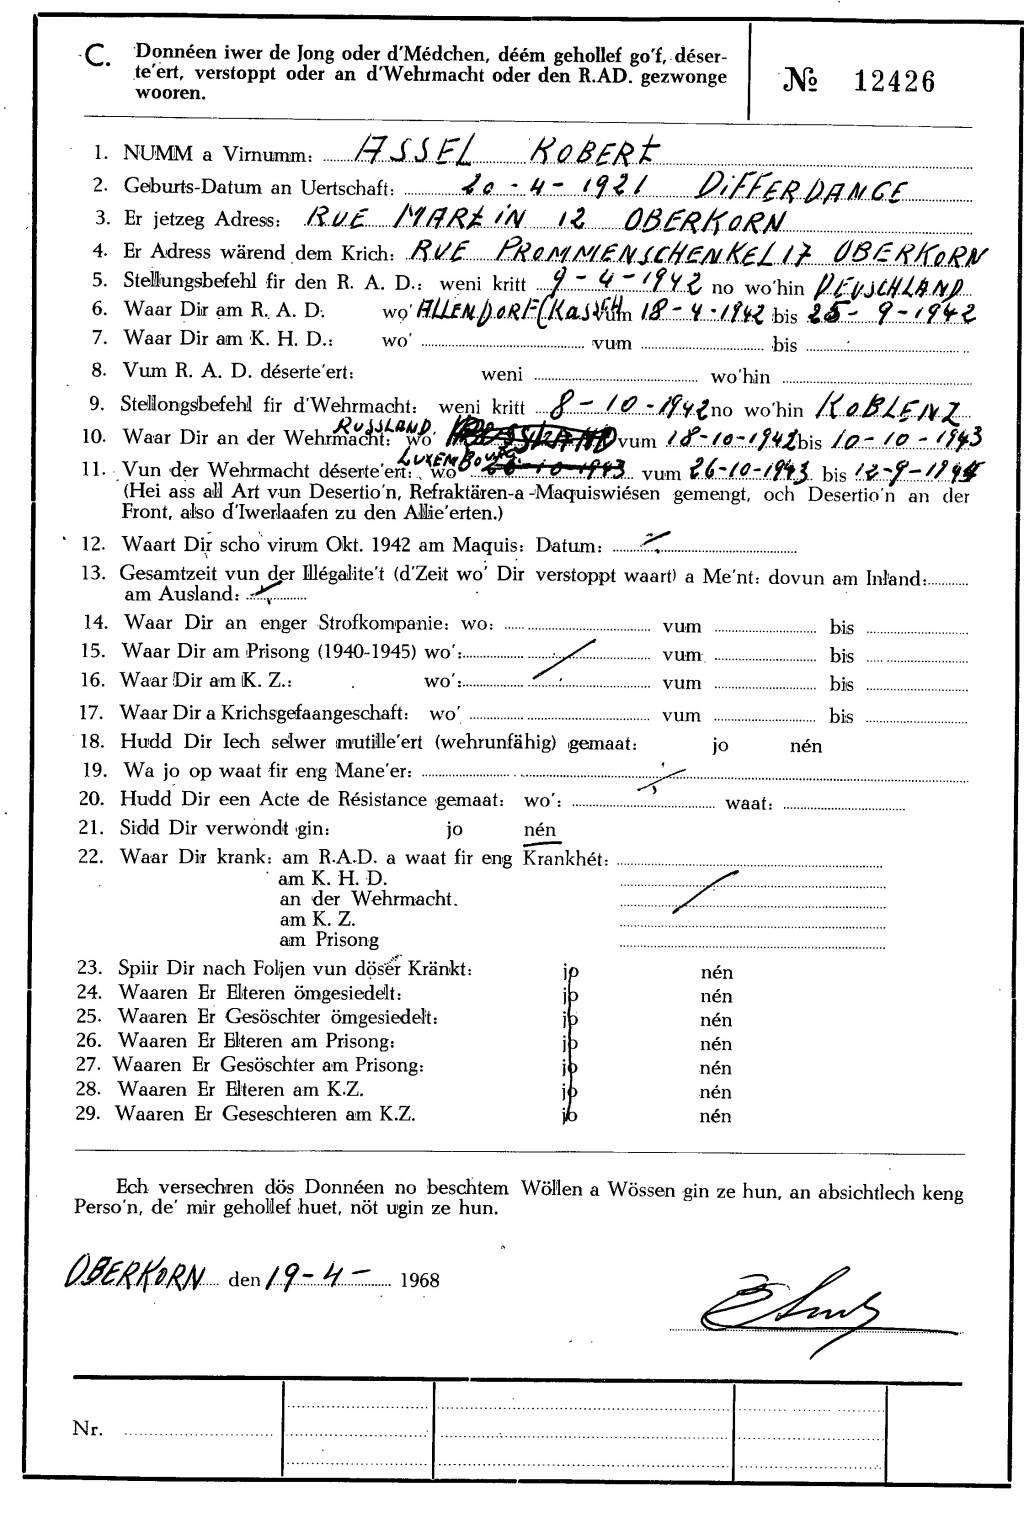 C. Donnéen iwer de Jong oder d'Médchen, déém gehollef go'f, déser-
te'ert, verstoppt oder an d'Wehrmacht oder den R.AD. gezwonge
wooren.
№ 12426
1. NUMM a Virnumm: ASSEL ROBERT
2. Geburts-Datum an Uertschaft: 20-4-1921 DIFFERDANGE
3. Er jetzeg Adress: RUE MARTIN 12 OBERKORN
4. Er Adress wärend dem Krich: RUE PROMMENSCHENKEL 17 OBERKORN
5. Stellungsbefehl fir den R. A. D.: weni kritt 9-4-1942 no wo'hin DEUSCHLAND
6. Waar Dir am R. A. D. wo' ALLENDORF (KASSEL) vum 18-4-1942 bis 25-9-1942
7. Waar Dir am K. H. D.: wo' vum bis
8. Vum R. A. D. déserte'ert: weni wo'hin
9. Stellongsbefehl fir d'Wehrmacht: weni kritt 8-10-1942 no wo'hin KOBLENZ
RUSSLAND
10. Waar Dir an der Wehrmacht: wo' vum 18-10-1942 bis 10-10-1943
LUXEMBOURG
11. Vun der Wehrmacht déserte'ert: wo 26-10-1943 vum 26-10-1943 bis 12-9-1944
(Hei ass all Art vun Desertio'n, Refraktären-a -Maquiswiésen gemengt, och Desertio'n an der
Front, also d'Iwerlaafen zu den Allie'erten.)
12. Waart Dir scho virum Okt. 1942 am Maquis: Datum:
13. Gesamtzeit vun der Illégalite't (d'Zeit wo' Dir verstoppt waart) a Me'nt: dovun am Inland:
am Ausland:
14. Waar Dir an enger Strofkompanie: wo: vum bis
15. Waar Dir am Prisong (1940-1945) wo': vum bis
16. Waar Dir am K. Z.: wo': vum bis
17. Waar Dir a Krichsgefaangeschaft: wo' vum bis
18. Hudd Dir Iech selwer mutille'ert (wehrunfähig) gemaat: jo nén
19. Wa jo op waat fir eng Mane'er:
20. Hudd Dir een Acte de Résistance gemaat: wo': waat:
21. Sidd Dir verwondt gin: jo nén
22. Waar Dir krank: am R.A.D. a waat fir eng Krankhét:
am K. H. D.
an der Wehrmacht.
am K. Z.
am Prisong
23. Spiir Dir nach Foljen vun döser Kränkt: jo nén
24. Waaren Er Elteren ömgesiedelt: jo nén
25. Waaren Er Gesöschter ömgesiedelt: jo nén
26. Waaren Er Elteren am Prisong: jo nén
27. Waaren Er Gesöschter am Prisong: jo nén
28. Waaren Er Elteren am K.Z. jo nén
29. Waaren Er Geseschteren am K.Z. jo nén
Ech versechren dös Donnéen no beschtem Wöllen a Wössen gin ze hun, an absichtlech keng
Perso'n, de' mir gehollef huet, nöt ugin ze hun.
OBERKORN den 19-4- 1968
Nr.